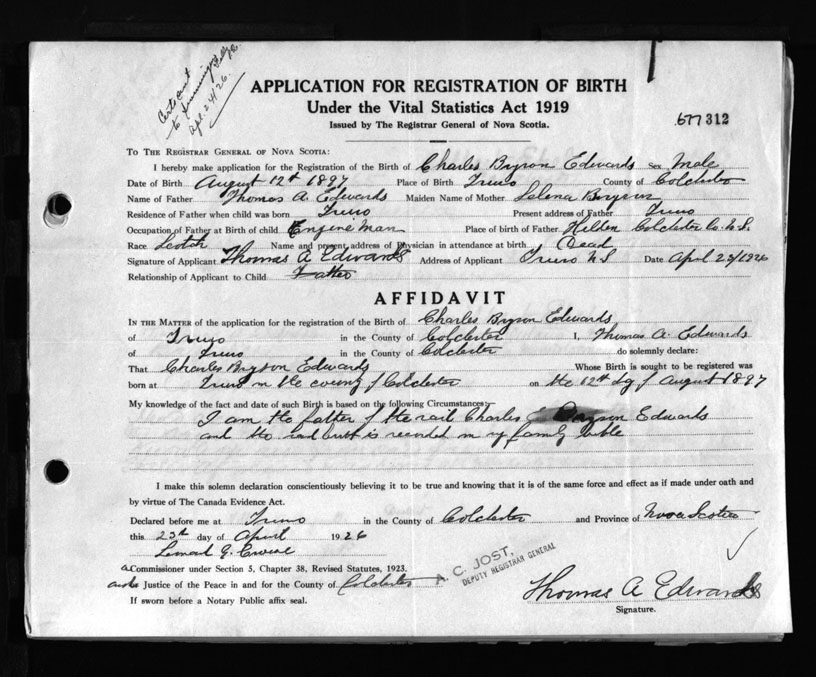 Certs sent
to
Apl. 24/26.
APPLICATION FOR REGISTRATION OF BIRTH
Under the Vital Statistics Act 1919
Issued by The Registrar General of Nova Scotia.
677 312
TO THE REGISTRAR GENERAL OF NOVA SCOTIA:
I hereby make application for the Registration of the Birth of Charles Bryson Edwards Sex Male
Date of Birth August 12th 1897 Place of Birth Truro County of Colchester
Name of Father Thomas A. Edwards Maiden Name of Mother Selena Bryson
Residence of Father when child was born Truro Present address of Father Truro
Occupation of Father at Birth of child Engine Man Place of birth of Father Hilden Colchester Co. N.S.
Race Scotch Name and present address of Physician in attendance at birth Dead
Signature of Applicant Thomas A Edwards Address of Applicant Truro N.S Date April 23/1926
Relationship of Applicant to Child Father
AFFIDAVIT
IN THE MATTER of the application for the registration of the Birth of Charles Bryson Edwards
of Truro in the County of Colchester I, Thomas A. Edwards
of Truro in the County of Colchester do solemnly declare:
That Charles Bryson Edwards Whose Birth is sought to be registered was
born at Truro in the county of Colchester on the 12th dy of August 1897
My knowledge of the fact and date of such Birth is based on the following Circumstances:
I am the father of the said Charles Bryson Edwards
and the said birth is recorded in my family bible
I make this solemn declaration conscientiously believing it to be true and knowing that it is of the same force and effect as if made under oath and
by virtue of The Canada Evidence Act.
Declared before me at Truro in the County of Colchester and Province of Nova Scotia
this 23rd day of April 1926
A Commissioner under Section 5, Chapter 38, Revised Statutes, 1923.
Justice of the Peace in and for the County of Colchester
If sworn before a Notary Public affix seal.
A. C. JOST,
DEPUTY REGISTRAR GENERAL
Thomas A Edwards
Signature.